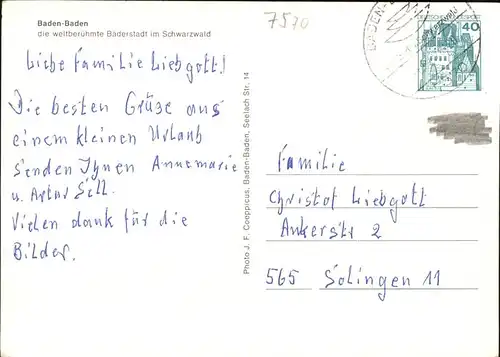 Baden-Baden
die weltberühmte Bäderstadt im Schwarzwald
7570
40
Liebe Familie Liebgott!
Die besten Grüße aus
einem kleinen Urlaub
senden Ihnen Annemarie
u. Artur Sell.
Vielen dank für die
Bilder.
Photo J. F. Coeppicus, Baden-Baden, Seelach Str. 14
Familie
Christof Liebgott
Ankerstr 2
565 Solingen 11